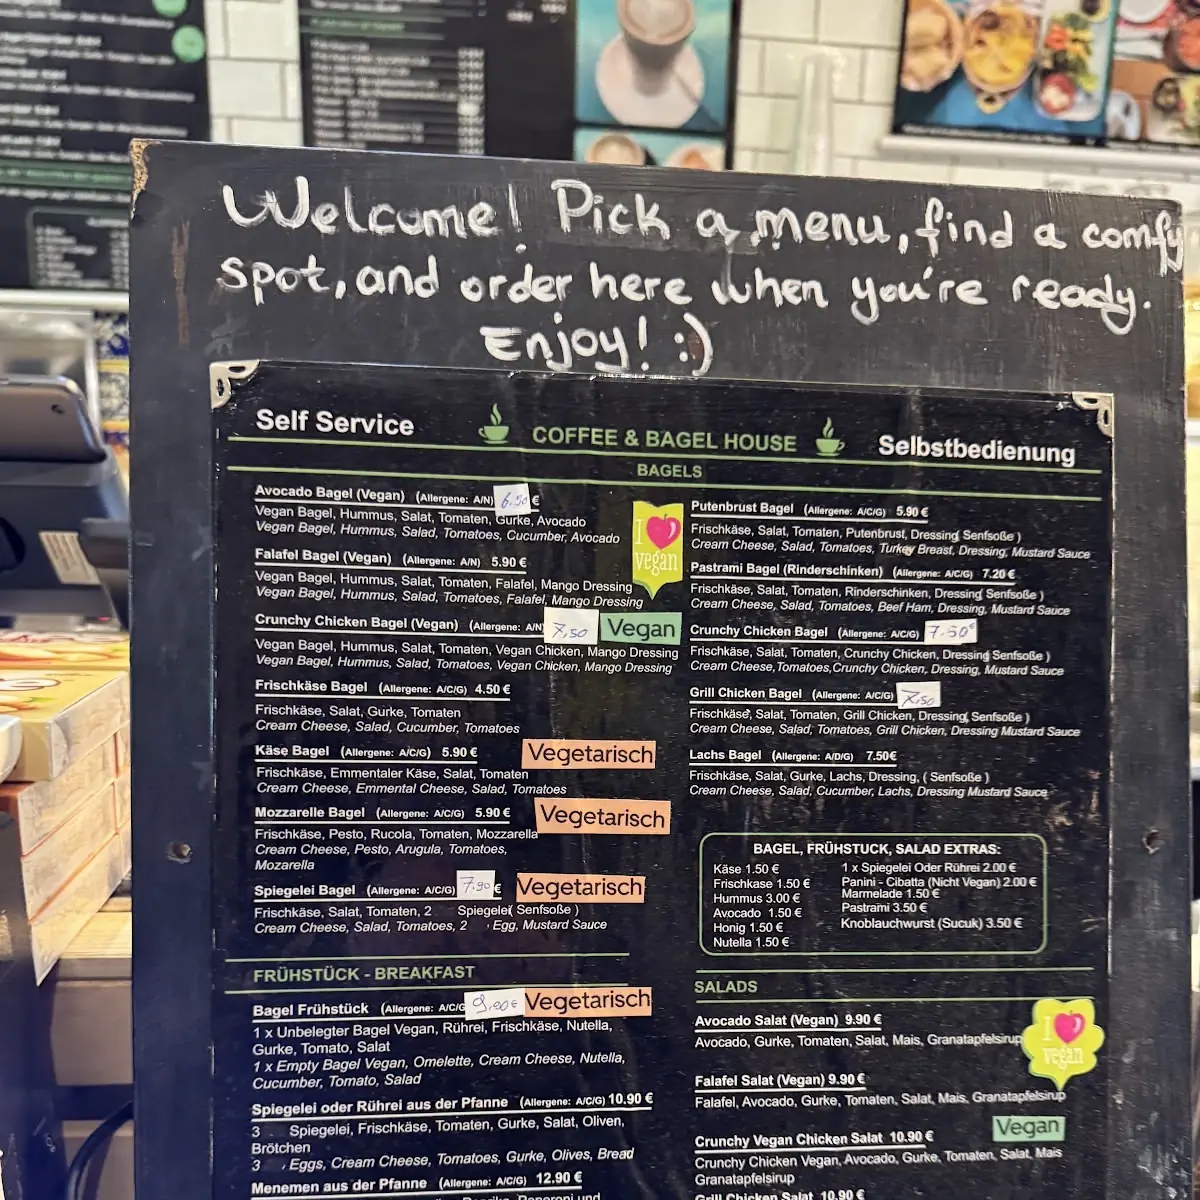 Welcome! Pick a menu, find a comfy
spot, and order here when you're ready.
Enjoy! :)
Self Service
COFFEE & BAGEL HOUSE
Selbstbedienung
BAGELS
Avocado Bagel (Vegan) (Allergene: A/N) 6,90 €
Vegan Bagel, Hummus, Salat, Tomaten, Gurke, Avocado
Vegan Bagel, Hummus, Salad, Tomatoes, Cucumber, Avocado
I
vegan
Falafel Bagel (Vegan) (Allergene: A/N) 5.90 €
Vegan Bagel, Hummus, Salat, Tomaten, Falafel, Mango Dressing
Vegan Bagel, Hummus, Salad, Tomatoes, Falafel, Mango Dressing
Crunchy Chicken Bagel (Vegan) (Allergene: A/N) 7,50 Vegan
Vegan Bagel, Hummus, Salat, Tomaten, Vegan Chicken, Mango Dressing
Vegan Bagel, Hummus, Salad, Tomatoes, Vegan Chicken, Mango Dressing
Frischkäse Bagel (Allergene: A/C/G) 4.50 €
Frischkäse, Salat, Gurke, Tomaten
Cream Cheese, Salad, Cucumber, Tomatoes
Käse Bagel (Allergene: A/C/G) 5.90 € Vegetarisch
Frischkäse, Emmentaler Käse, Salat, Tomaten
Cream Cheese, Emmental Cheese, Salad, Tomatoes
Mozzarelle Bagel (Allergene: A/C/G) 5.90 € Vegetarisch
Frischkäse, Pesto, Rucola, Tomaten, Mozzarella
Cream Cheese, Pesto, Arugula, Tomatoes,
Mozarella
Spiegelei Bagel (Allergene: A/C/G) 7.90 € Vegetarisch
Frischkäse, Salat, Tomaten, 2 Spiegelei( Senfsoße )
Cream Cheese, Salad, Tomatoes, 2 Egg, Mustard Sauce
Putenbrust Bagel (Allergene: A/C/G) 5.90 €
Frischkäse, Salat, Tomaten, Putenbrust, Dressing( Senfsoße )
Cream Cheese, Salad, Tomatoes, Turkey Breast, Dressing, Mustard Sauce
Pastrami Bagel (Rinderschinken) (Allergene: A/C/G) 7.20 €
Frischkäse, Salat, Tomaten, Rinderschinken, Dressing( Senfsoße )
Cream Cheese, Salad, Tomatoes, Beef Ham, Dressing, Mustard Sauce
Crunchy Chicken Bagel (Allergene: A/C/G) 7.50€
Frischkäse, Salat, Tomaten, Crunchy Chicken, Dressing( Senfsoße )
Cream Cheese,Tomatoes,Crunchy Chicken, Dressing, Mustard Sauce
Grill Chicken Bagel (Allergene: A/C/G) 7,50
Frischkäse, Salat, Tomaten, Grill Chicken, Dressing( Senfsoße )
Cream Cheese, Salad, Tomatoes, Grill Chicken, Dressing Mustard Sauce
Lachs Bagel (Allergene: A/D/G) 7.50€
Frischkäse, Salat, Gurke, Lachs, Dressing, ( Senfsoße )
Cream Cheese, Salad, Cucumber, Lachs, Dressing Mustard Sauce
BAGEL, FRÜHSTUCK, SALAD EXTRAS:
Käse 1.50 €
Frischkase 1.50 €
Hummus 3.00 €
Avocado 1.50 €
Honig 1.50 €
Nutella 1.50 €
1 x Spiegelei Oder Rührei 2.00 €
Panini - Cibatta (Nicht Vegan) 2.00 €
Marmelade 1.50 €
Pastrami 3.50 €
Knoblauchwurst (Sucuk) 3.50 €
FRÜHSTÜCK - BREAKFAST
Bagel Frühstück (Allergene: A/C/G 9,00€ Vegetarisch
1 x Unbelegter Bagel Vegan, Rührei, Frischkäse, Nutella,
Gurke, Tomato, Salat
1 x Empty Bagel Vegan, Omelette, Cream Cheese, Nutella,
Cucumber, Tomato, Salad
Spiegelei oder Rührei aus der Pfanne (Allergene: A/C/G) 10.90 €
3 Spiegelei, Frischkäse, Tomaten, Gurke, Salat, Oliven,
Brötchen
3 , Eggs, Cream Cheese, Tomatoes, Gurke, Olives, Bread
Menemen aus der Pfanne (Allergene: A/C/G) 12.90 €
SALADS
Avocado Salat (Vegan) 9.90 €
Avocado, Gurke, Tomaten, Salat, Mais, Granatapfelsirup
I
vegan
Falafel Salat (Vegan) 9.90 €
Falafel, Avocado, Gurke, Tomaten, Salat, Mais, Granatapfelsirup
Vegan
Crunchy Vegan Chicken Salat 10.90 €
Crunchy Chicken Vegan, Avocado, Gurke, Tomaten, Salat, Mais
Granatapfelsirup
Grill Chicken Salat 10.90 €